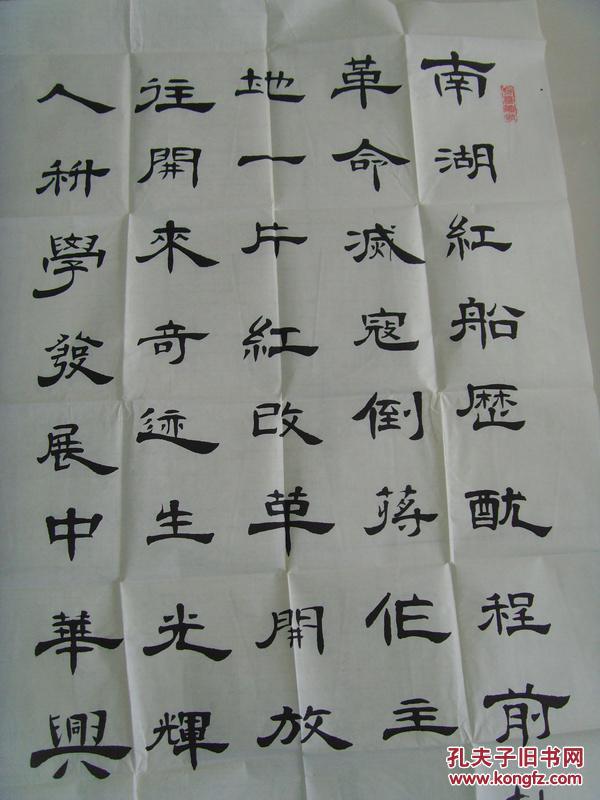 南湖紅船歷酞程前
革命滅寇倒蔣作主
地一片紅改革開放
往開來奇迹生光輝
人科學發展中華興
孔夫子旧书网
www.kongfz.com